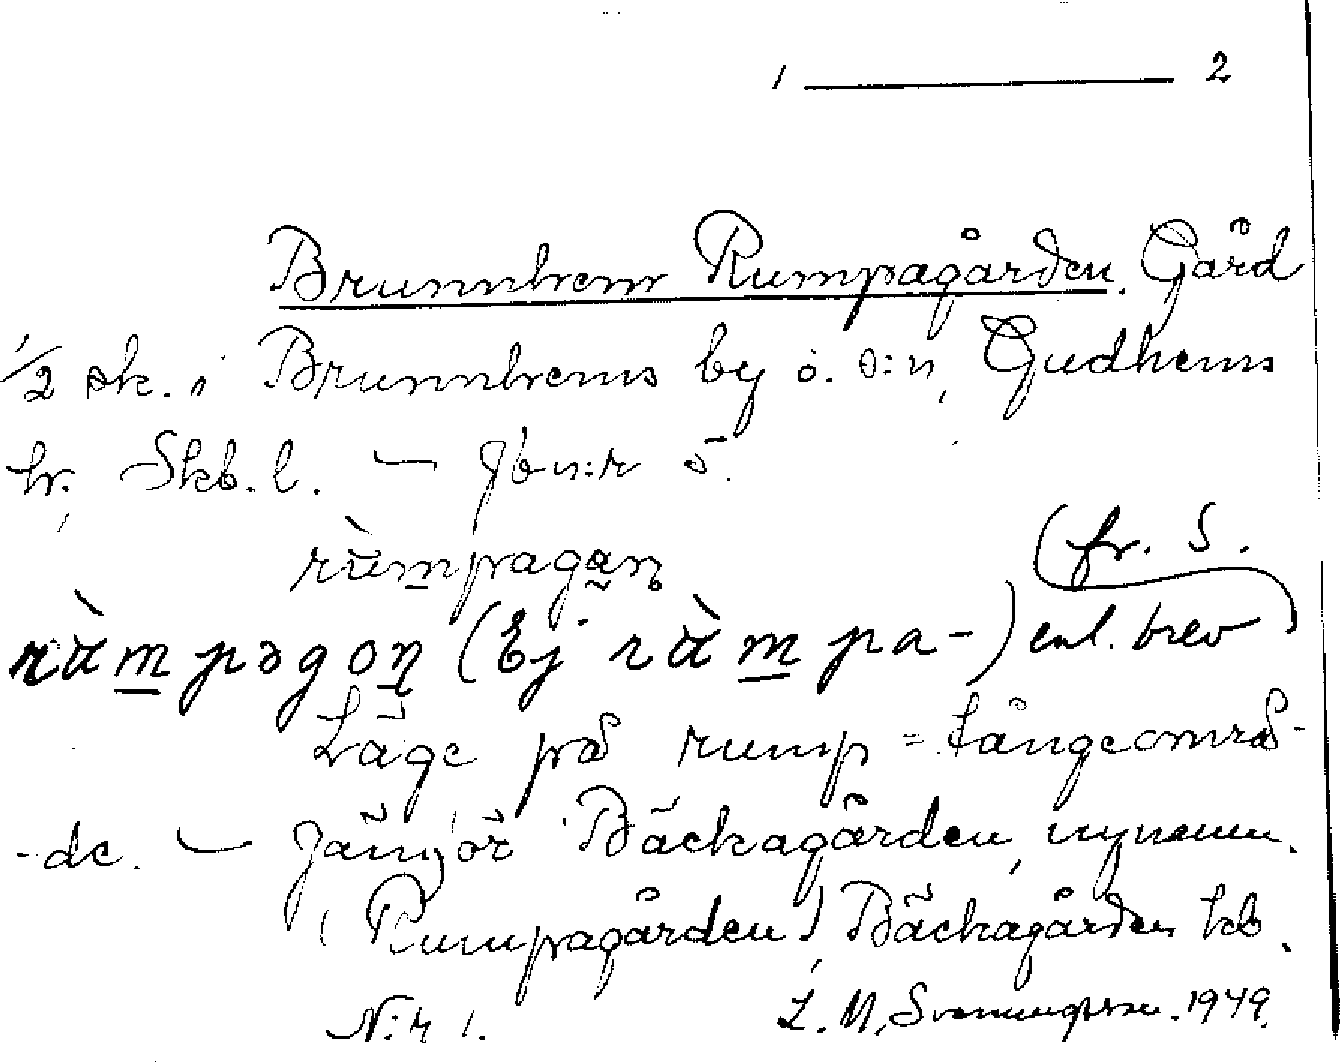 1 ——— 2
Brunnhem Rumpagården. Gård
1/2 sk. i Brunnhems by o. s:n, Gudhems
hr. Skb. l. — Jb n:r 5.
rùmpagan̥
(fr. S.
rùmpəgon (Ej rùmpa-) enl. brev
Läge på rump = tångeområ-
-de. — Jämför Bäckagården, nynamn.
(Rumpagården) Bäckagården kb.
N:r 1. L. M. Svenungsson. 1949.